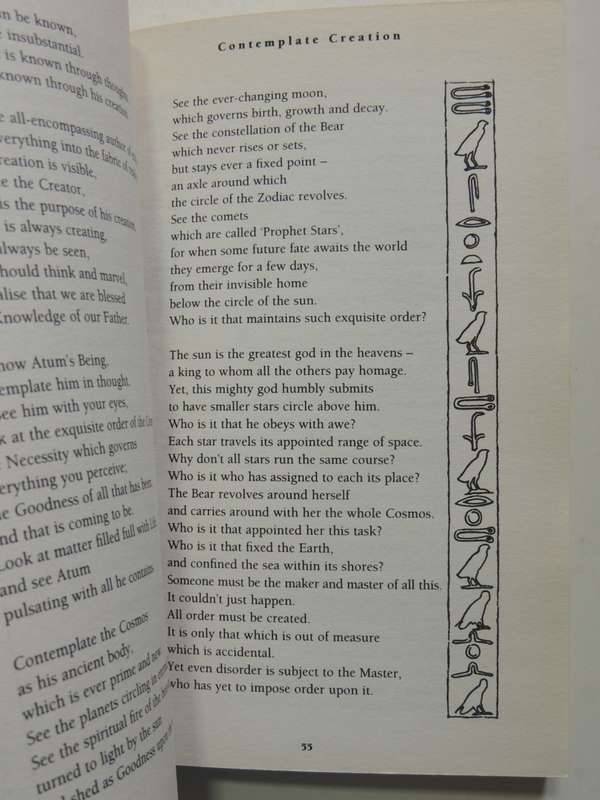 n be known,
insubstantial.
is known through thought,
known through his creation.
all-encompassing author of
everything into the fabric of
creation is visible,
the Creator,
is the purpose of his creation,
is always creating,
always be seen,
should think and marvel,
alise that we are blessed
Knowledge of our Father.
now Atum's Being,
template him in thought.
see him with your eyes,
k at the exquisite order of the
Necessity which governs
erything you perceive;
e Goodness of all that has been
nd that is coming to be.
Look at matter filled full with Life
and see Atum
pulsating with all he contains
Contemplate the Cosmos
as his ancient body,
which is ever prime and new
See the planets circling in
See the spiritual fire of the
turned to light by the sun
shed as Goodness upon
Contemplate Creation
See the ever-changing moon,
which governs birth, growth and decay.
See the constellation of the Bear
which never rises or sets,
but stays ever a fixed point –
an axle around which
the circle of the Zodiac revolves.
See the comets
which are called 'Prophet Stars',
for when some future fate awaits the world
they emerge for a few days,
from their invisible home
below the circle of the sun.
Who is it that maintains such exquisite order?
The sun is the greatest god in the heavens –
a king to whom all the others pay homage.
Yet, this mighty god humbly submits
to have smaller stars circle above him.
Who is it that he obeys with awe?
Each star travels its appointed range of space.
Why don't all stars run the same course?
Who is it who has assigned to each its place?
The Bear revolves around herself
and carries around with her the whole Cosmos.
Who is it that appointed her this task?
Who is it that fixed the Earth,
and confined the sea within its shores?
Someone must be the maker and master of all this.
It couldn't just happen.
All order must be created.
It is only that which is out of measure
which is accidental.
Yet even disorder is subject to the Master,
who has yet to impose order upon it.
55